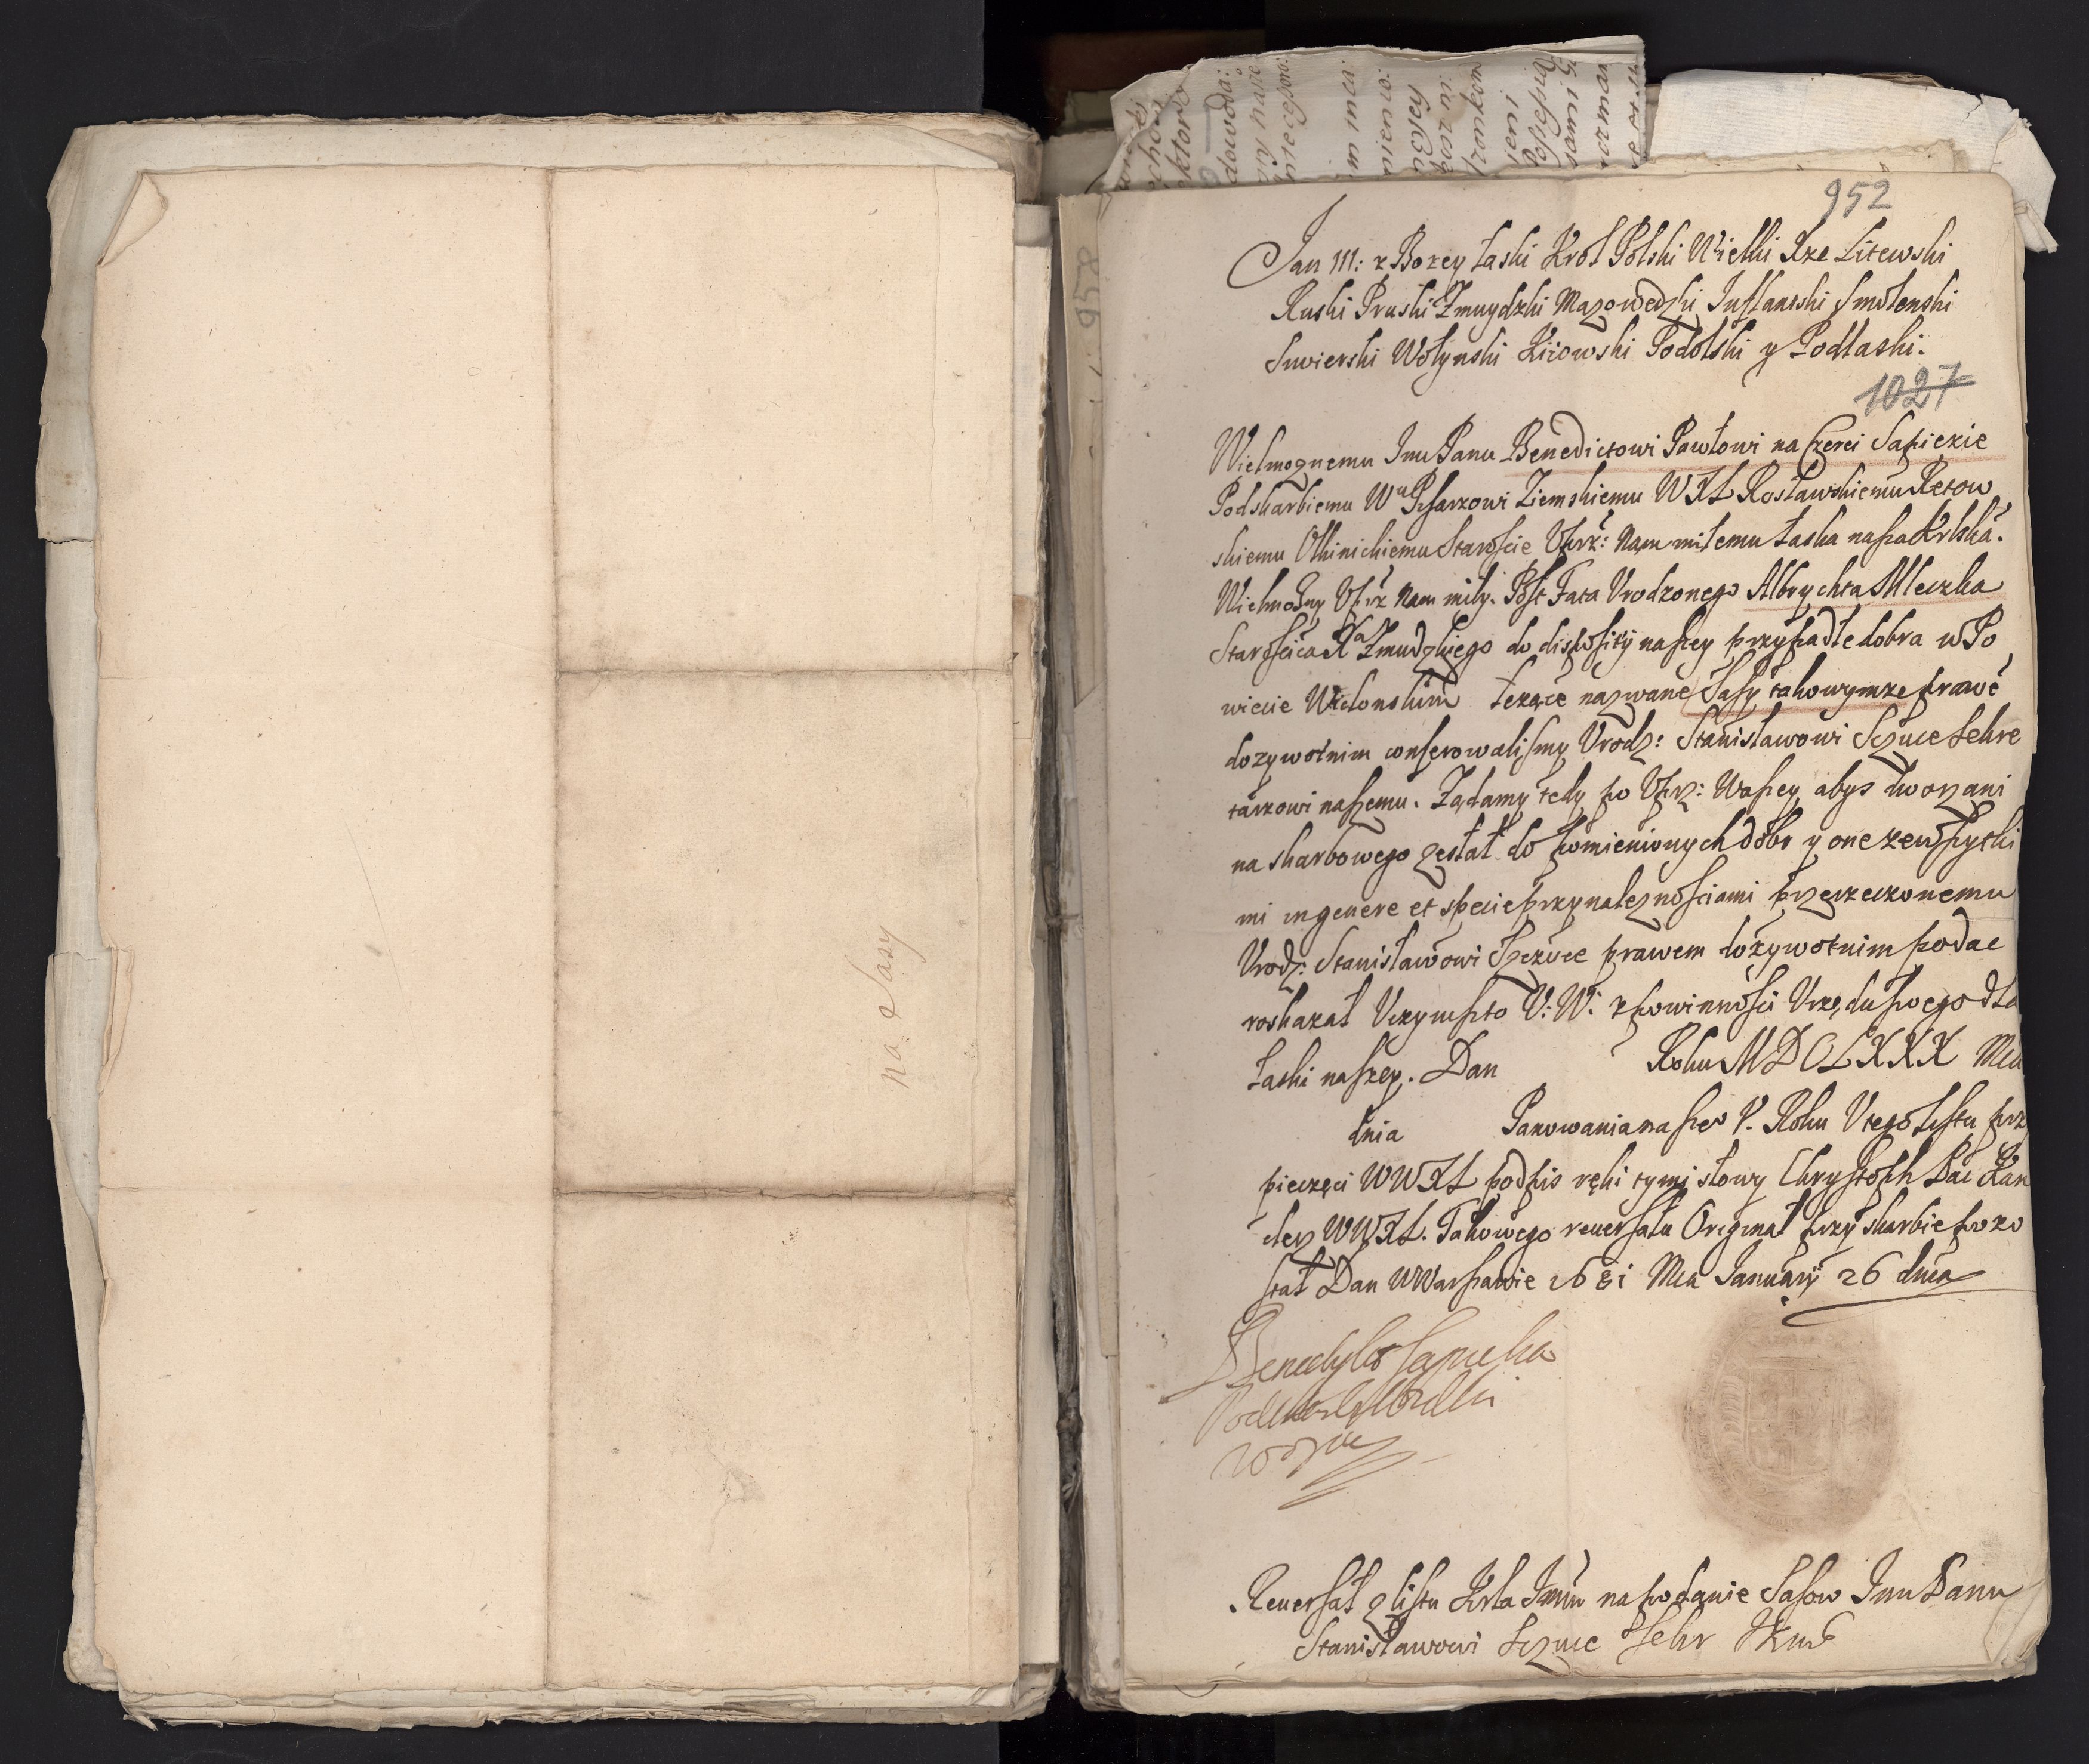 na Sasy
952
Jan III: z Bozey łaski Krol Polski Wielki Xze Litewski
Ruski Pruski Zmuydzki Mazowedzki Inflantski Smolenski
Siwierski Wołynski Kiiowski Podolski y Podlaski.
1027
Wielmoznemu Jmu Panu Benedictowi Pawłowi na Czerei Sapiezie
Podskarbiemu Wu Pisarzowi Ziemskiemu WXL Rosławskiemu Retow
skiemu Olkinickiemu Staroscie Uprz: Nam miłemu łaska nasza Krlska.
Wielmozny Uprz Nam miły. Post Fata Urodzonego Albrychta Mleczka
Starościca Xa Zmudzkiego do disposityi naszey przypadłe dobra w Po
wiecie Wielonskim lezące nazwane Sasy takowymze prawe
dozywotnim conferowalismy Urodz: Stanisławowi Sczuce Sekre
tarzowi naszemu. Ządamy tedy po Uprz: Waszey, abys dworzani
na skarbowego zesłał do pomienionych dobr y one ze wszytki
mi in genere et specie przynaleznosciami przerzeczonemu
Urodz: Stanisławowi Szczuce prawem dozywotnim podac
roskazał Uczynisz to U: W: z powinnosci Urzędu swego dla
łaski naszey. Dan Roku MDCLXXX Mca
dnia Panowania naszeo V. Roku U tego listu prz
pieczęci WWXL podpis ręki tymi słowy Chrysztoph Pac Kan
clerz WWXL. Takowego reuersału Originał przy skarbie pozo
stał Dan w Warszawie 1681 Mca January 26 dnia
Benedykt Sapieha
Podskarbi Wielki
WXL
958
Reuersał z listu Krla Jmci na podanie Sasow Jmu Panu
Stanisławowi Sczuce Sekr JKMć